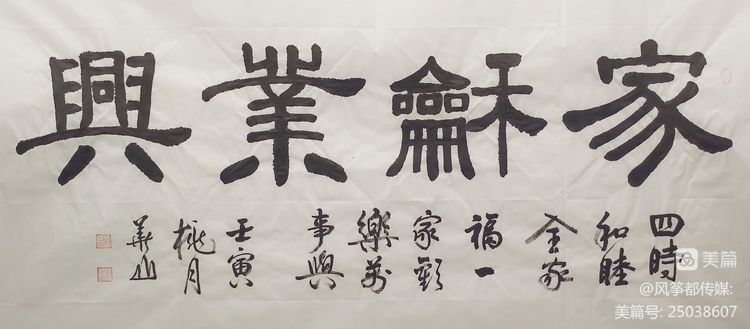 家龢業興
四時
和睦
全家
福一
家歡
樂萬
事興
壬寅
桃月
華山
美篇
@风筝都传媒:
美篇号: 25038607